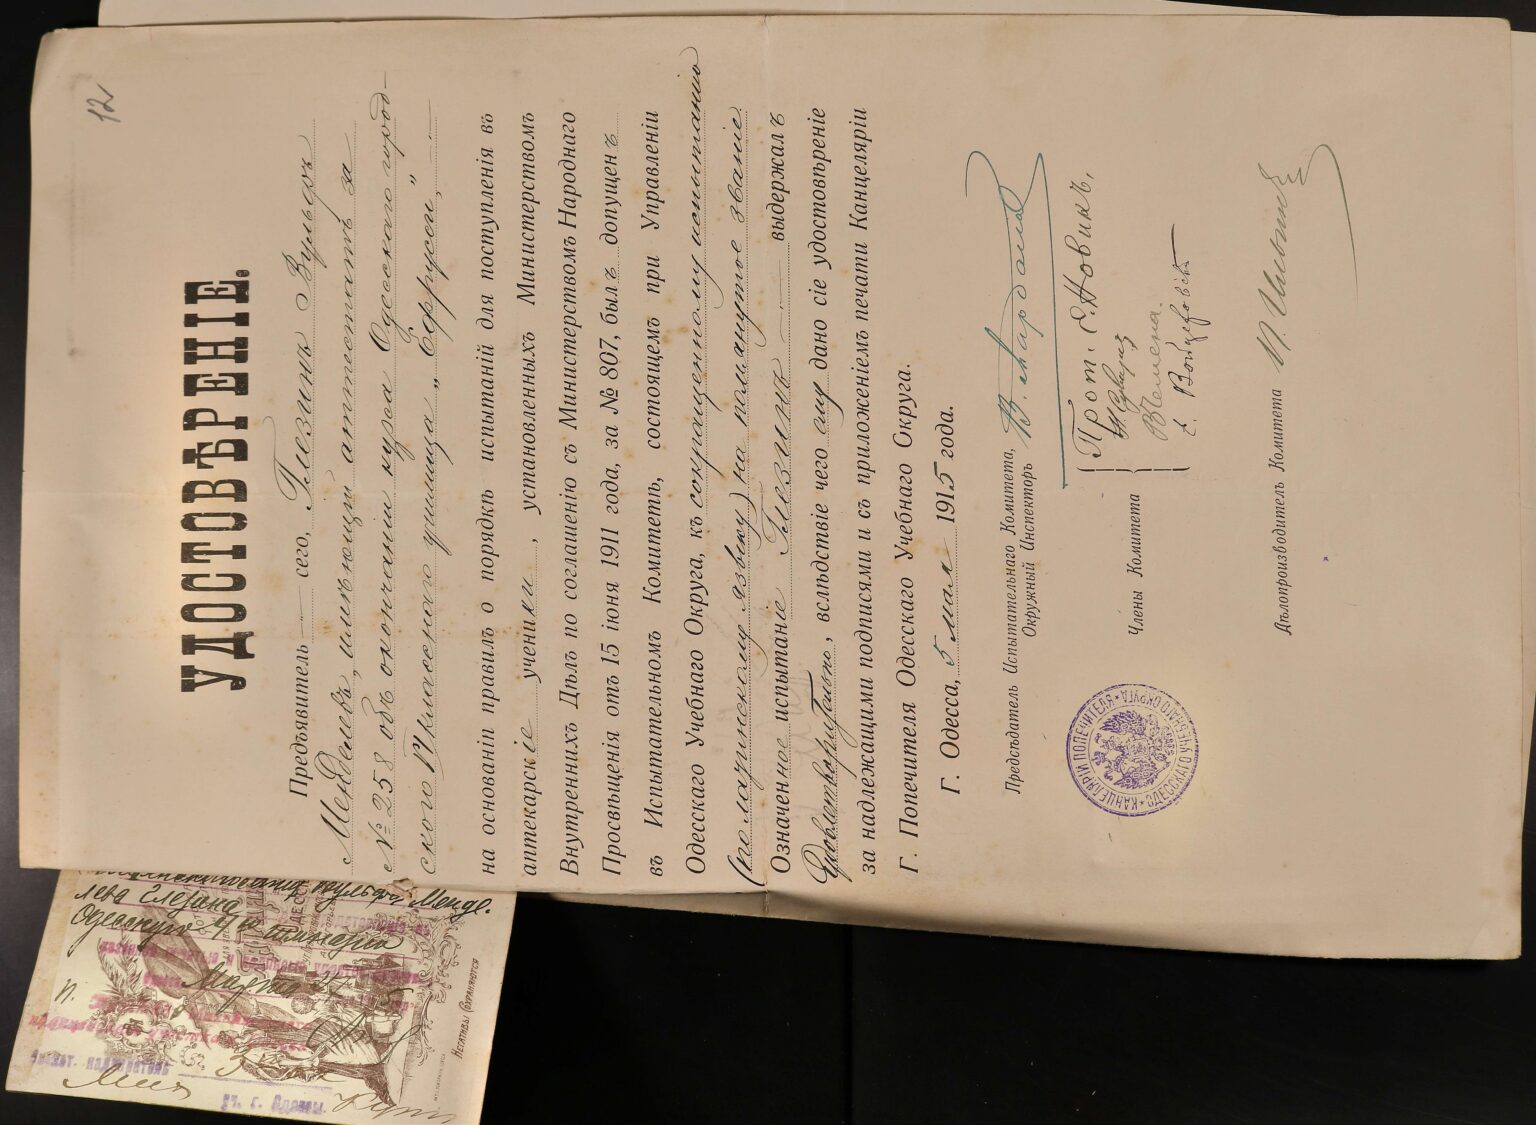 12
УДОСТОВѢРЕНІЕ.
Предъявитель сего, Глезинъ Вульфъ
Менделевъ, имѣющій аттестатъ за
№ 258 объ окончаніи курса Одесскаго город-
ского IV класснаго училища „Ефрусси",
на основаніи правилъ о порядкѣ испытаній для поступленія въ
аптекарскіе ученики, установленныхъ Министерствомъ
Внутреннихъ Дѣлъ по соглашенію съ Министерствомъ Народнаго
Просвѣщенія отъ 15 іюня 1911 года, за № 807, былъ допущенъ
въ Испытательномъ Комитетѣ, состоящемъ при Управленіи
Одесскаго Учебнаго Округа, къ сокращенному испытанію
(по латинскому языку) на помянутое званіе.
Означенное испытаніе Глезинъ выдержалъ
Удовлетворительно, вслѣдствіе чего ему дано сіе удостовѣреніе
за надлежащими подписями и съ приложеніемъ печати Канцеляріи
Г. Попечителя Одесскаго Учебнаго Округа.
Г. Одесса, 5 мая 1915 года.
Предсѣдатель Испытательнаго Комитета,
Окружный Инспекторъ
Члены Комитета
Прот. Е. Новинъ,
Дѣлопроизводитель Комитета
КАНЦЕЛЯРІИ ПОПЕЧИТЕЛЯ ОДЕССКАГО УЧЕБНАГО ОКРУГА
Вульфа Менде-
лева Глезина
Одесса
Марта
Негативы сохраняются
г. Одессы